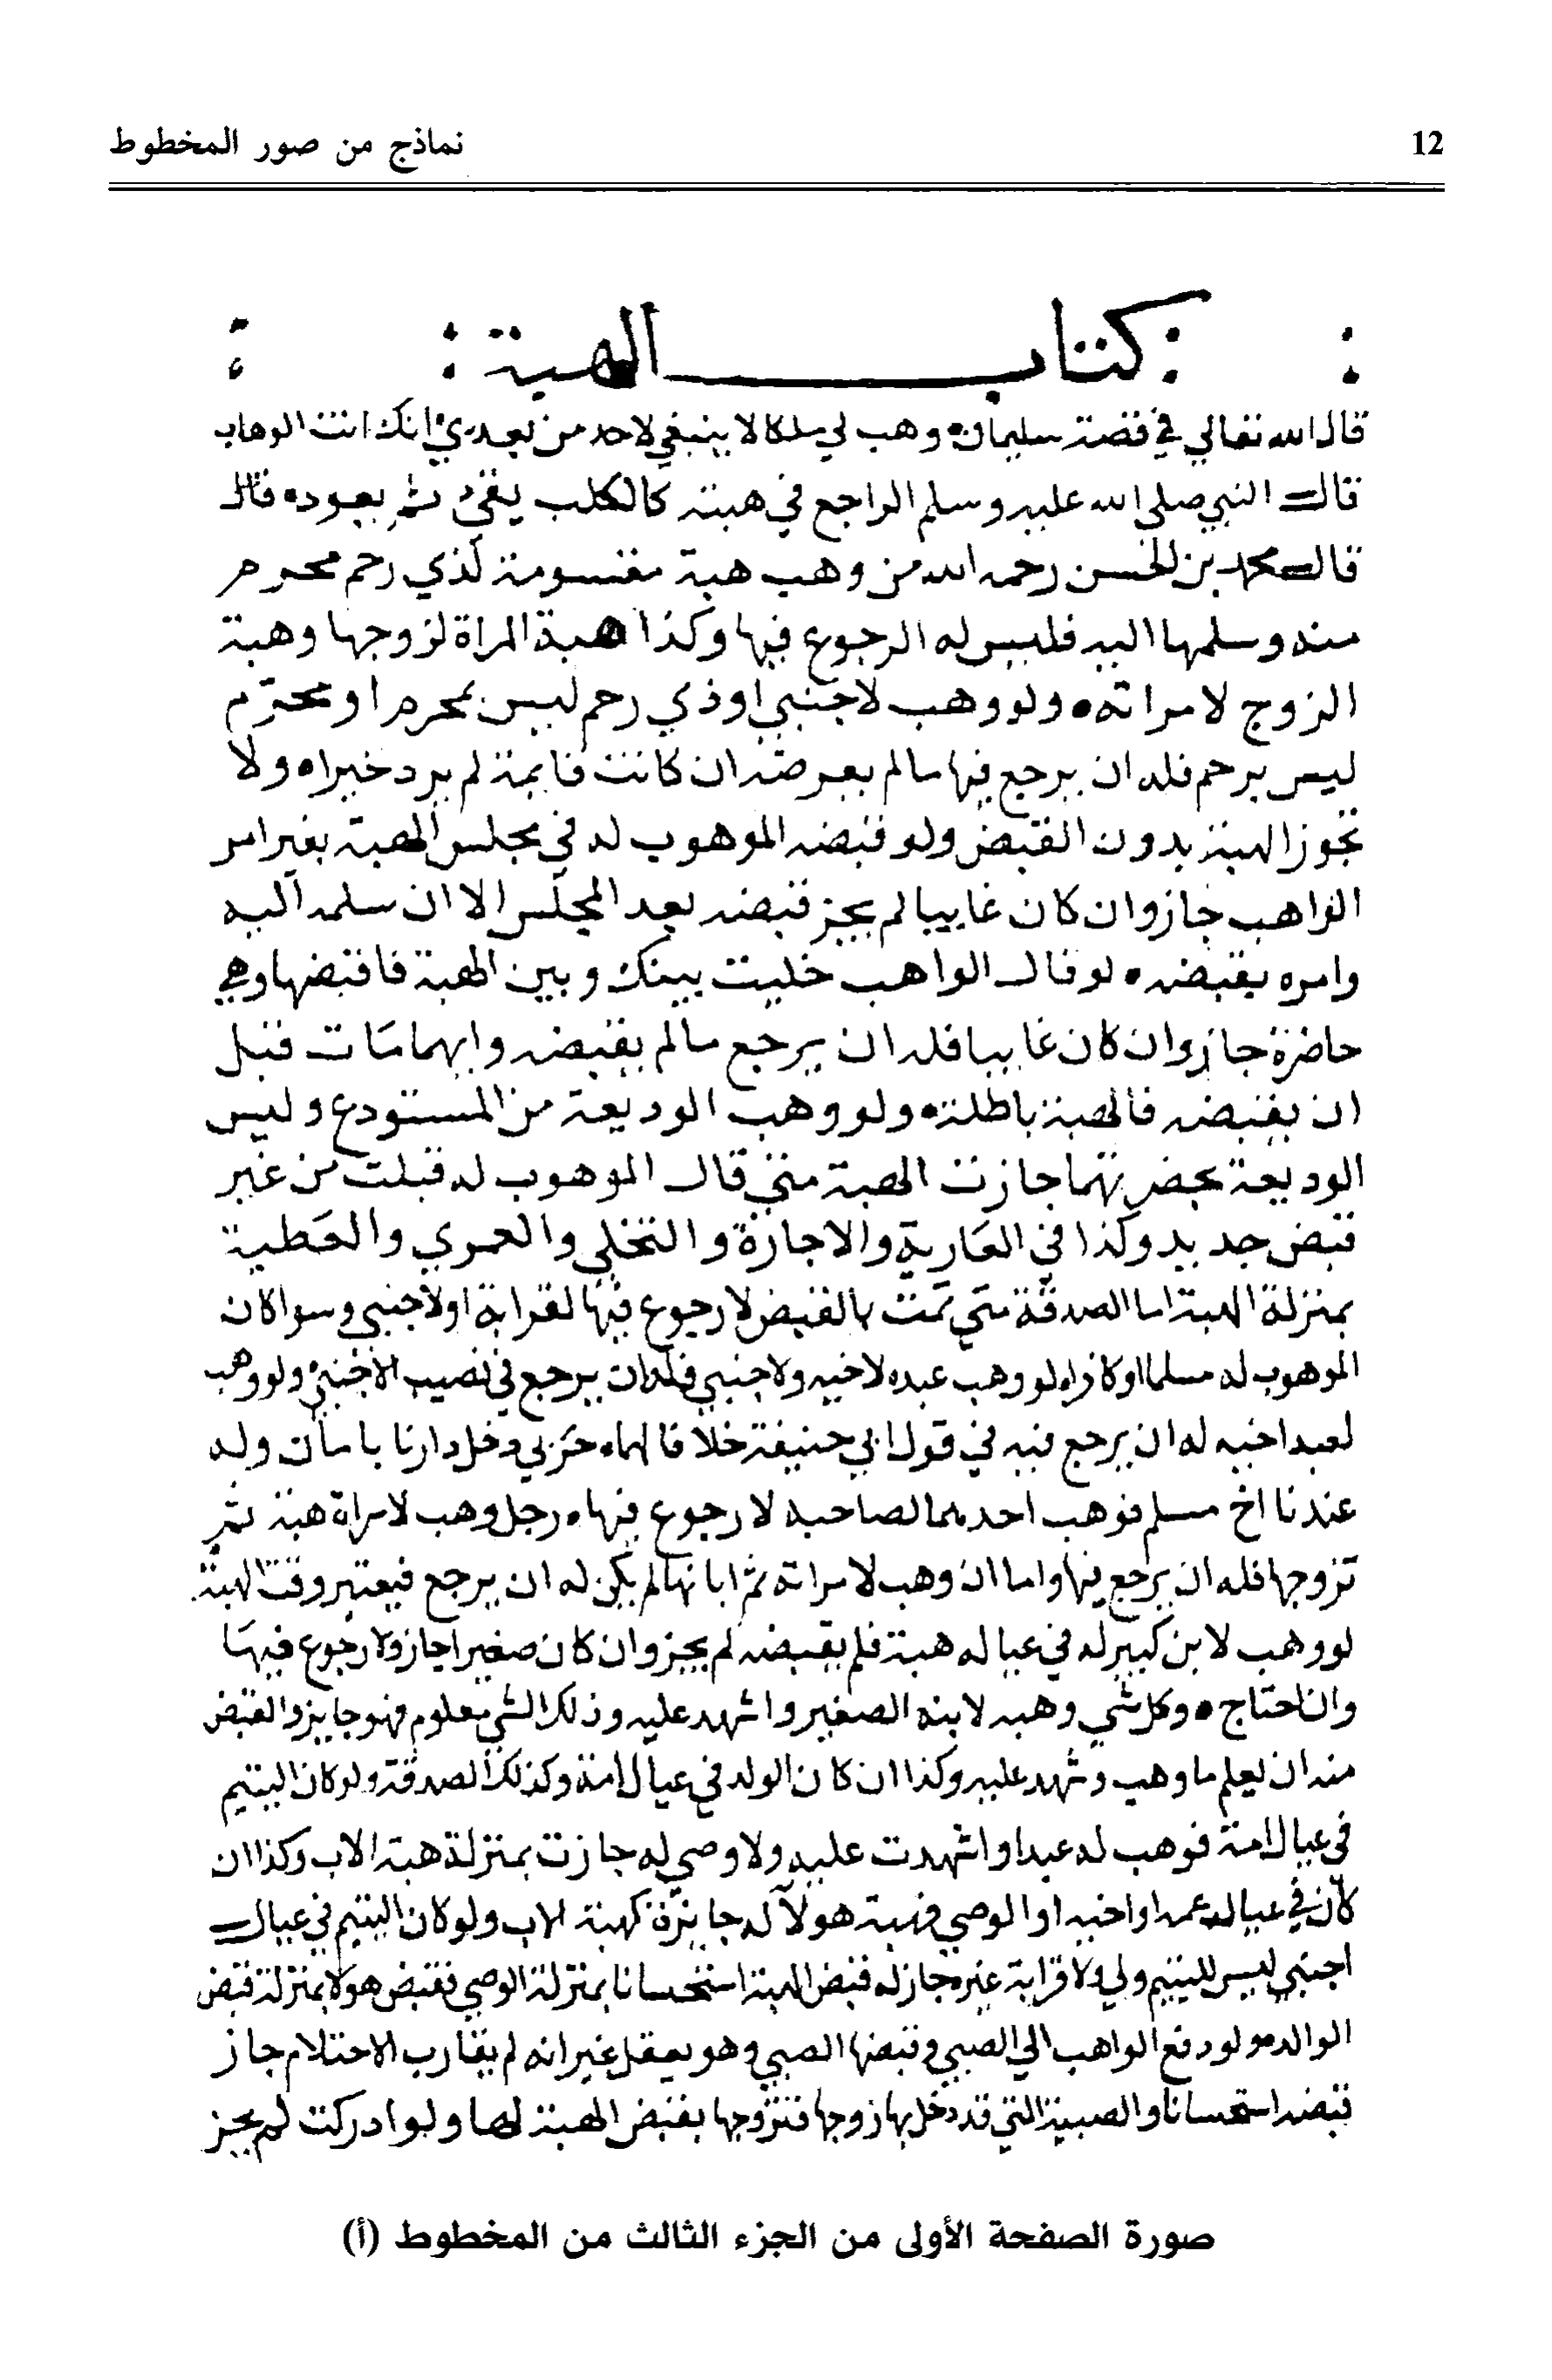 12
نماذج من صور المخطوط
: : كتاب الهبة : :
قال الله تعالي في قصة سليمان وهب لي ملكا لا ينبغي لاحد من بعدي انك انت الوهاب
قال النبي صلي الله عليه وسلم الراجع في هبته كالكلب يقئ ثم يعوده قال
قال محمد بن الحسن رحمه الله من وهب هبة مقسومة لذي رحم محرم
منه وسلمها اليه فليس له الرجوع فيها وكذا هبة المراة لزوجها وهبة
الزوج لامراته ولو وهب لاجنبي او ذي رحم ليس بمحرم او محرم
ليس برحم فله ان يرجع فيها مالم يعرضه ان كانت قايمة لم يرد خيرا ولا
تجوز الهبة بدون القبض ولو قبضه الموهوب له في مجلس الهبة بغير امر
الواهب جاز وان كان غايبا لم يجز قبضه بعد المجلس الا ان سلمه اليه
وامره بقبضه لو قال الواهب خليت بينك وبين الهبة فاقبضها وهي
حاضرة جاز وان كان غايبا فله ان يرجع مالم يقبضه وايهما مات قبل
ان يقبضه فالهبة باطلة ولو وهب الوديعة من المستودع وليس
الوديعة بحضرتهما جازت الهبة متي قال الموهوب له قبلت من غير
قبض جديد وكذا في العارية والاجارة و النحلي والعمري والعطية
بمنزلة الهبة اما الصدقة متي تمت بالقبض لا رجوع فيها لقرابة او لاجنبي وسوا كان
الموهوب له مسلما او كافرا لو وهب عبده لاخيه ولاجنبي فله ان يرجع في نصيب الاجنبي ولو وهب
لعبد اخيه له ان يرجع فيه في قول ابي حنيفة خلافا لهما حربي دخل دارنا بامان وله
عندنا اخ مسلم فوهب احدهما لصاحبه لا رجوع فيها رجل وهب لامراة هبة ثم
تزوجها فله ان يرجع فيها واما ان وهب لامراته ثم ابانها لم يكن له ان يرجع فيعتبر وقت الهبة
لو وهب لابن كبير له في عياله هبة فلم يقبضه لم يجز وان كان صغيرا جاز ولا رجوع فيها
وان احتاج وكل شي وهبه لابنه الصغير واشهد عليه وذلك الشي معلوم فهو جايز والقبض
منه ان يعلم ما وهب وشهد عليه وكذا ان كان الولد في عيال امه وكذلك الصدقة ولو كان اليتيم
في عيال امه فوهب له عبدا واشهدت عليه ولا وصي له جازت بمنزلة هبة الاب وكذا ان
كان في عياله عمه او اخيه او الوصي فهبة هولا له جايزة كهبة الاب ولو كان اليتيم في عيال
اجنبي ليس لليتيم ولي ولا قرابة غيره جاز له قبض الهبة استحسانا بمنزلة الوصي فقبض هولا بمنزلة قبض
الوالد ولو دفع الواهب الي الصبي وقبضها الصبي وهو يعقل غير انه لم يقارب الاحتلام جاز
قبضه استحسانا والصبية التي قد دخل بها زوجها فتزوجها بقبض الهبة لها ولو ادركت لم يجز
صورة الصفحة الأولى من الجزء الثالث من المخطوط (أ)